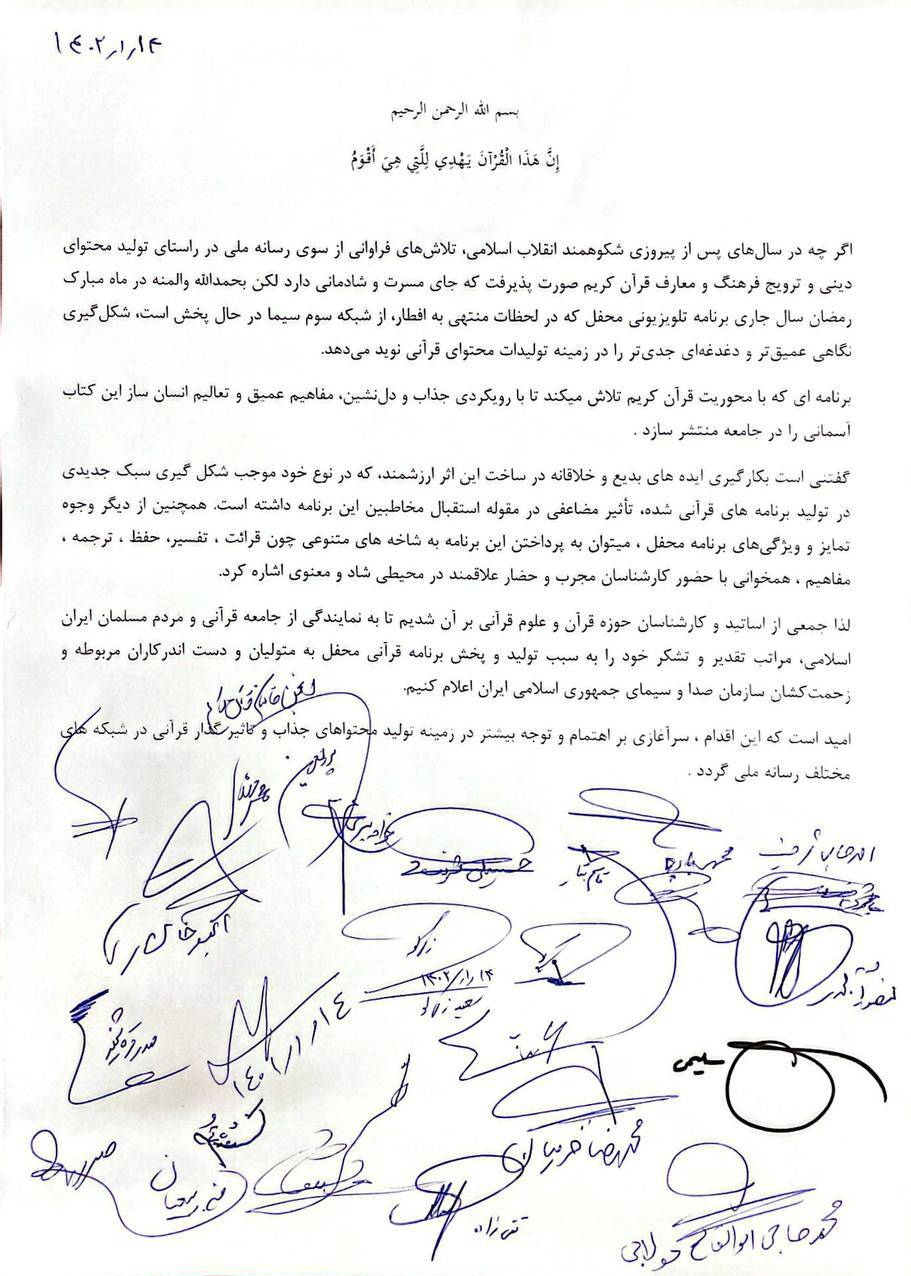 ۱۴۰۲/۰۱/۱۴
بسم الله الرحمن الرحیم
إِنَّ هَذَا الْقُرْآنَ يَهْدِي لِلَّتِي هِيَ أَقْوَمُ
اگر چه در سال‌های پس از پیروزی شکوهمند انقلاب اسلامی، تلاش‌های فراوانی از سوی رسانه ملی در راستای تولید محتوای
دینی و ترویج فرهنگ و معارف قرآن کریم صورت پذیرفت که جای مسرت و شادمانی دارد لکن بحمدالله والمنه در ماه مبارک
رمضان سال جاری برنامه تلویزیونی محفل که در لحظات منتهی به افطار، از شبکه سوم سیما در حال پخش است، شکل‌گیری
نگاهی عمیق‌تر و دغدغه‌ای جدی‌تر را در زمینه تولیدات محتوای قرآنی نوید می‌دهد.
برنامه ای که با محوریت قرآن کریم تلاش میکند تا با رویکردی جذاب و دل‌نشین، مفاهیم عمیق و تعالیم انسان ساز این کتاب
آسمانی را در جامعه منتشر سازد .
گفتنی است بکارگیری ایده های بدیع و خلاقانه در ساخت این اثر ارزشمند، که در نوع خود موجب شکل گیری سبک جدیدی
در تولید برنامه های قرآنی شده، تأثیر مضاعفی در مقوله استقبال مخاطبین این برنامه داشته است. همچنین از دیگر وجوه
تمایز و ویژگی‌های برنامه محفل ، میتوان به پرداختن این برنامه به شاخه های متنوعی چون قرائت ، تفسیر، حفظ ، ترجمه ،
مفاهیم ، همخوانی با حضور کارشناسان مجرب و حضار علاقمند در محیطی شاد و معنوی اشاره کرد.
لذا جمعی از اساتید و کارشناسان حوزه قرآن و علوم قرآنی بر آن شدیم تا به نمایندگی از جامعه قرآنی و مردم مسلمان ایران
اسلامی، مراتب تقدیر و تشکر خود را به سبب تولید و پخش برنامه قرآنی محفل به متولیان و دست اندرکاران مربوطه و
زحمت‌کشان سازمان صدا و سیمای جمهوری اسلامی ایران اعلام کنیم.
امید است که این اقدام ، سرآغازی بر اهتمام و توجه بیشتر در زمینه تولید محتواهای جذاب و تاثیرگذار قرآنی در شبکه های
مختلف رسانه ملی گردد .
قاسم
۱۴۰۲/۰۱/۱۴
سعید
سلیمی
محمدرضا
تقی زاده
محمد حاجی ابوالقاسم دولابی